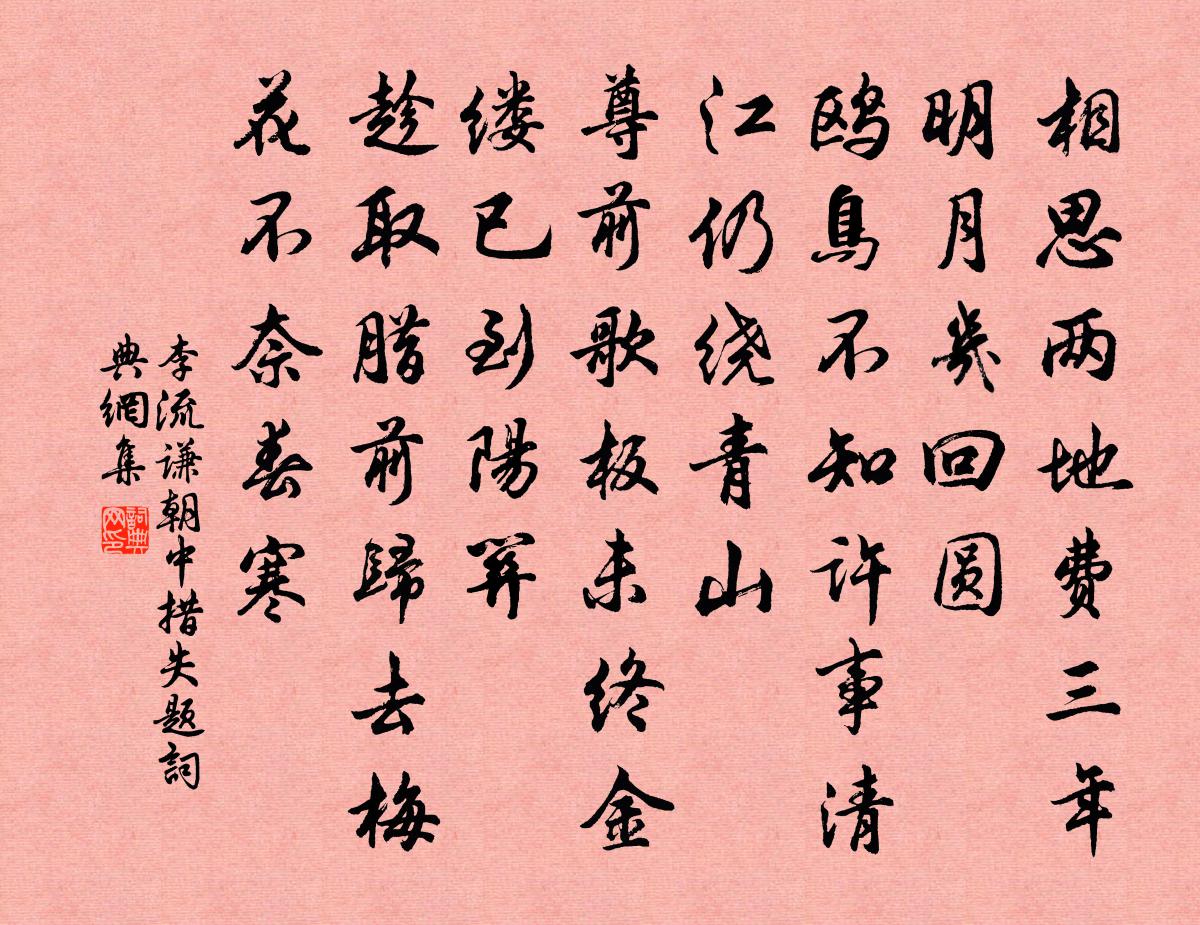 相思两地费三年
明月幾回圆
鸥鳥不知许事清
江仍绕青山
尊前歌板未终金
缕已到陽関
趁取腊前歸去梅
花不奈春寒
李流谦朝中措失题詞
典網集
詞典
网印